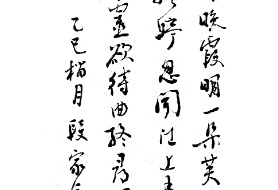 晚霞明一朵芙
娉婷忽闻江上
靈欲待曲终尋
乙巳榴月段家